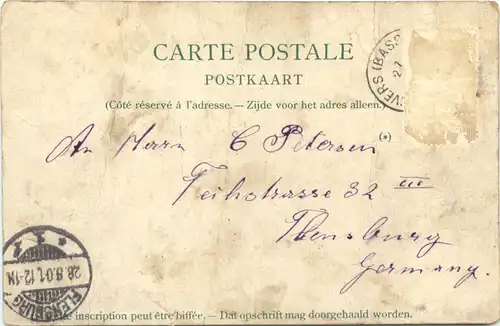 CARTE POSTALE
POSTKAART
(Côté réservé à l'adresse. — Zijde voor het adres alleen.)
(*)
An Herrn C Petersen
Teichstrasse 32 III
Flensburg
Germany.
VERS (BAS
27
FLENSBURG
28.8.01.12-1N.
inscription peut être biffée. — Dat opschrift mag doorgehaald worden.